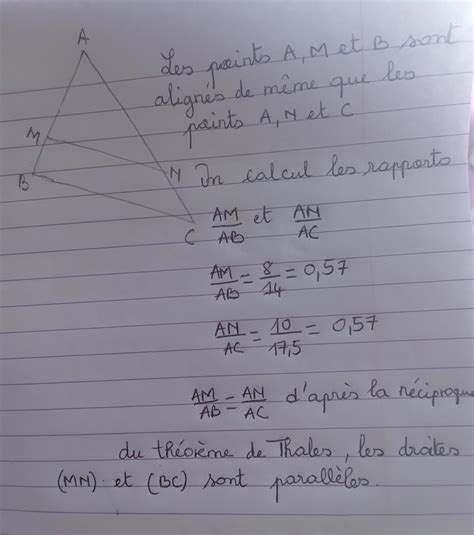 A
Les points A, M et B sont
alignés de même que les
points A, N et C
M
N
B
On calcul les rapports
C
AM/AB et AN/AC
AM/AB = 8/14 = 0,57
AN/AC = 10/17,5 = 0,57
AM/AB = AN/AC d'après la réciproque
du théorème de Thales, les droites
(MN) et (BC) sont parallèles.